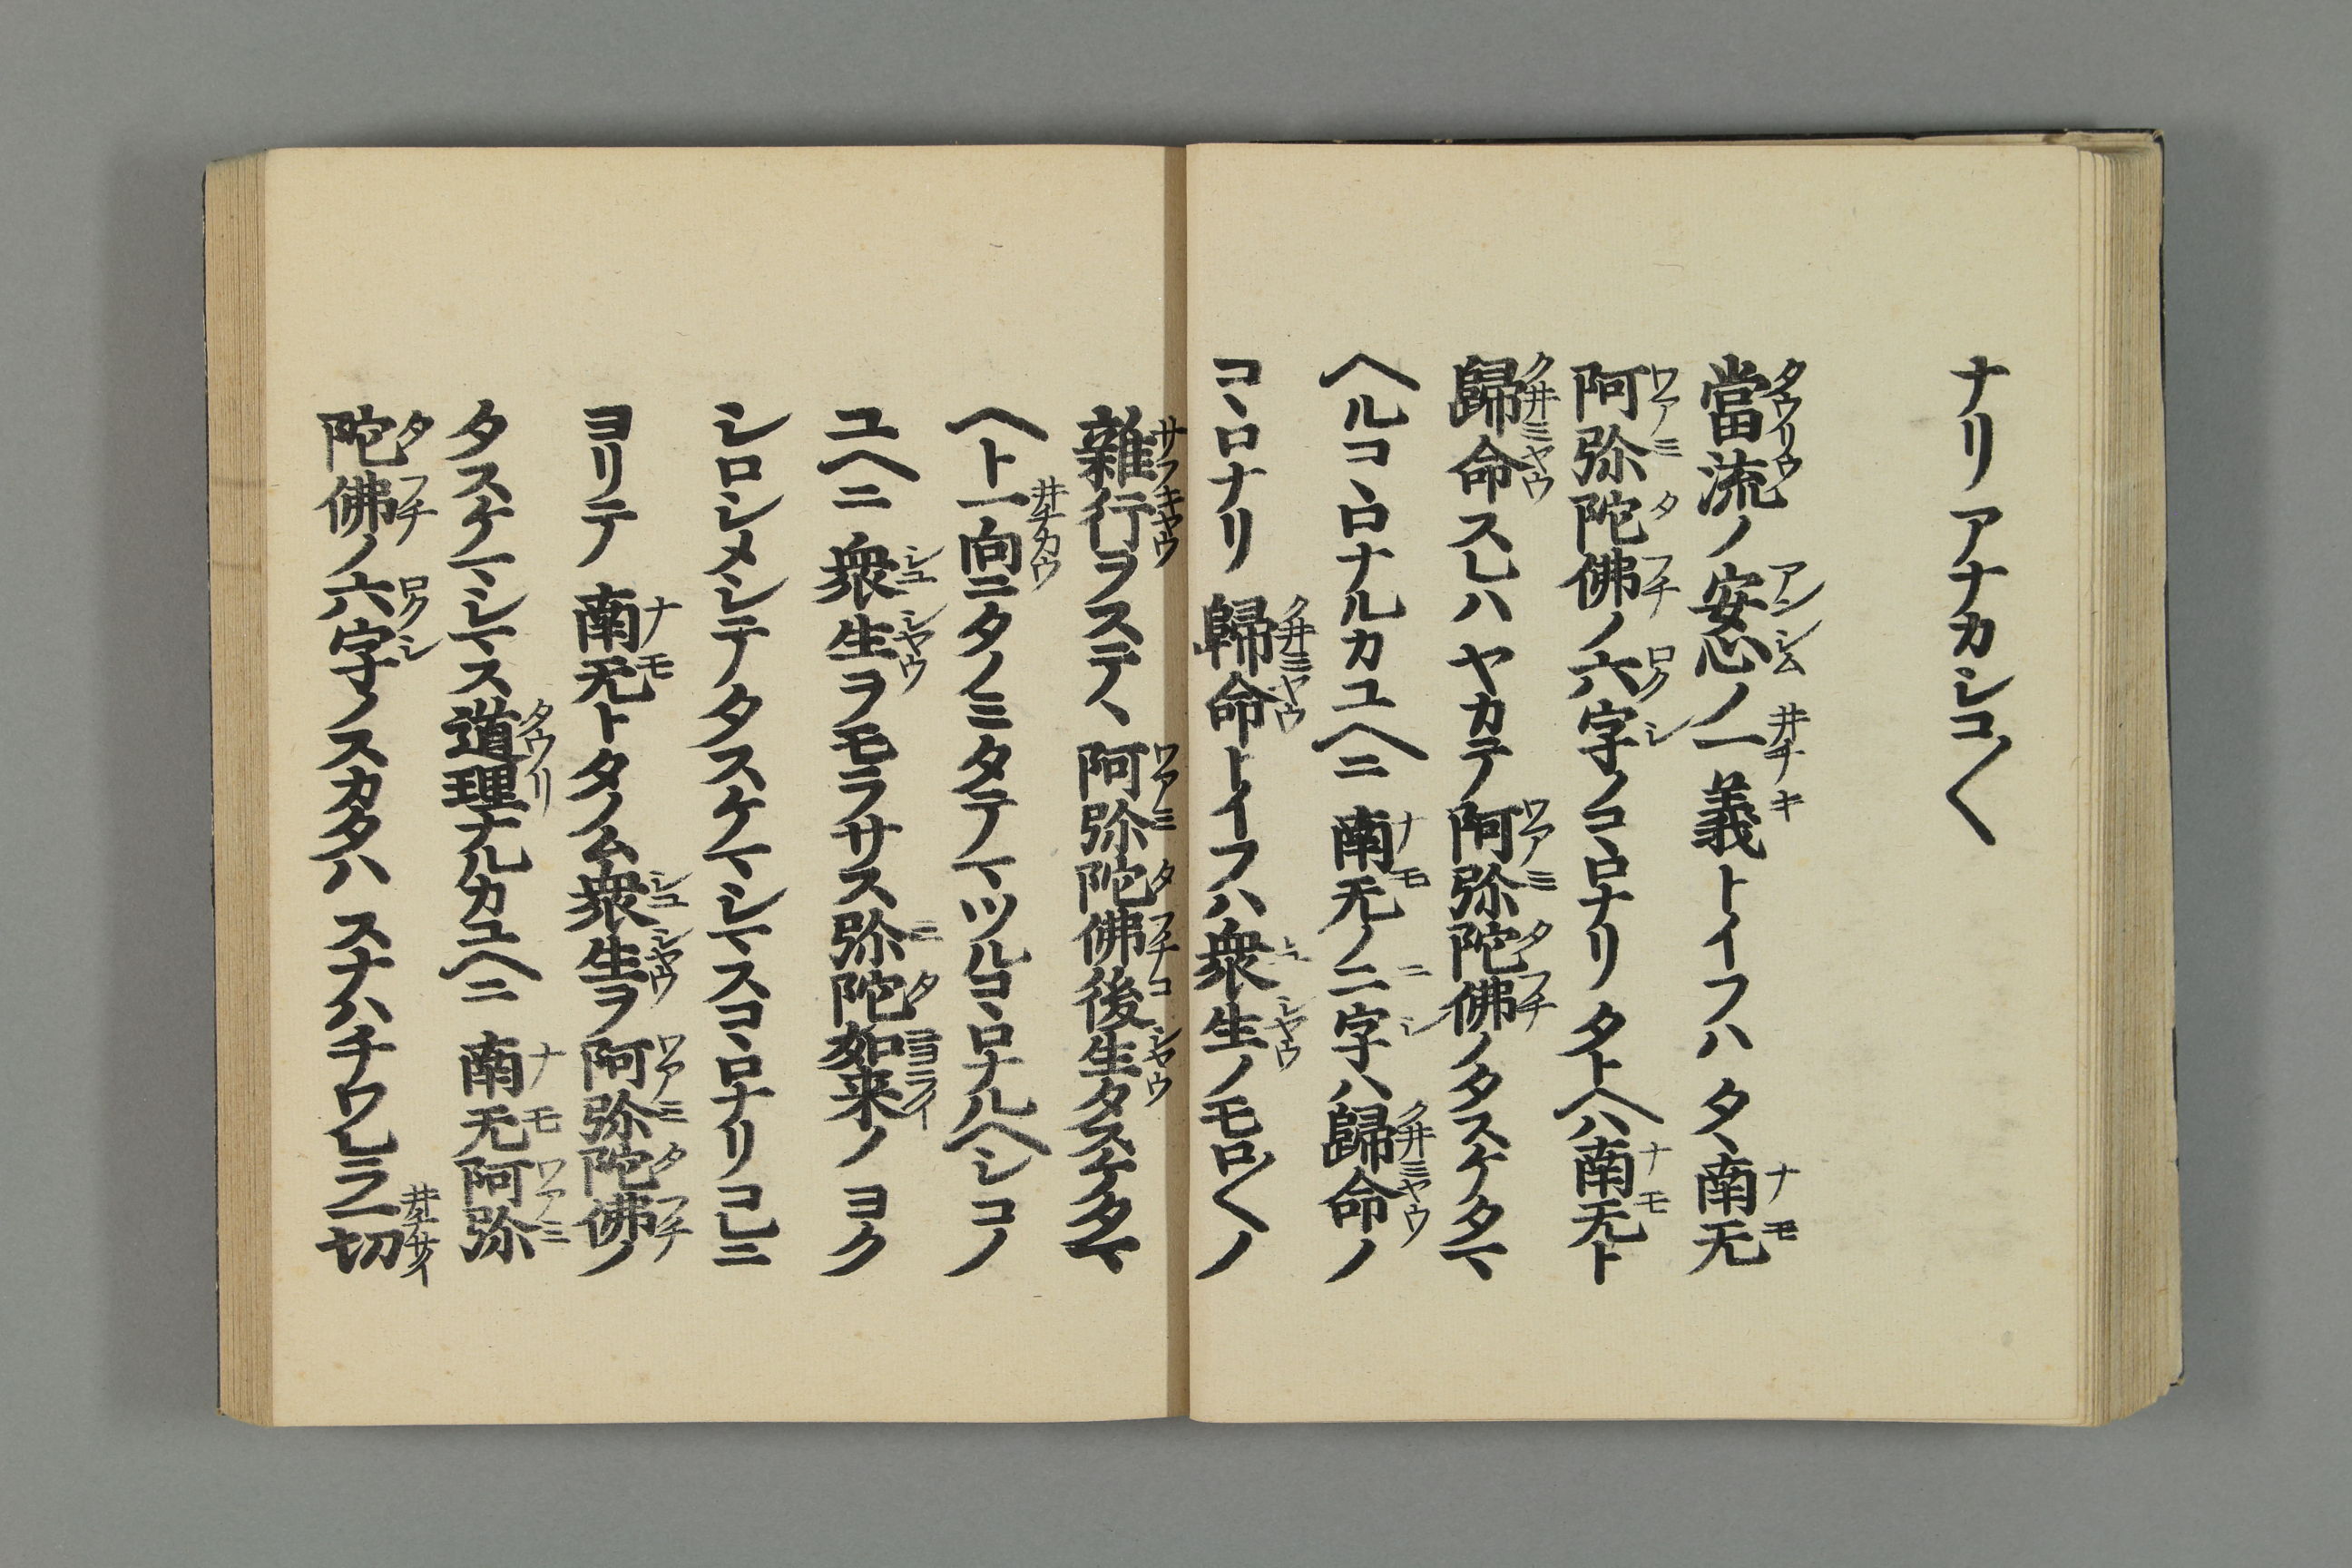 ナリアナカシコ〳〵
當流ノ安心ノ一義トイフハタヽ南无
阿弥陀佛ノ六字ノコヽロナリタトヘハ南无ト
歸命スレハヤカテ阿弥陀佛ノタスケタマ
ヘルコヽロナルカユヘニ南无ノ二字ハ歸命ノ
コヽロナリ歸命トイフハ衆生ノモロ〳〵ノ
雜行ヲステヽ阿弥陀佛後生タスケタマ
ヘト一向ニタノミタテマツルコヽロナルヘシコノ
ユヘニ衆生ヲモラサス弥陀如来ノヨク
シロシメシテタスケマシマスコヽロナリコレニ
ヨリテ南无トタノム衆生ヲ阿弥陀佛ノ
タスケマシマス道理ナルカユヘニ南无阿弥
陀佛ノ六字ノスカタハスナハチワレラ一切